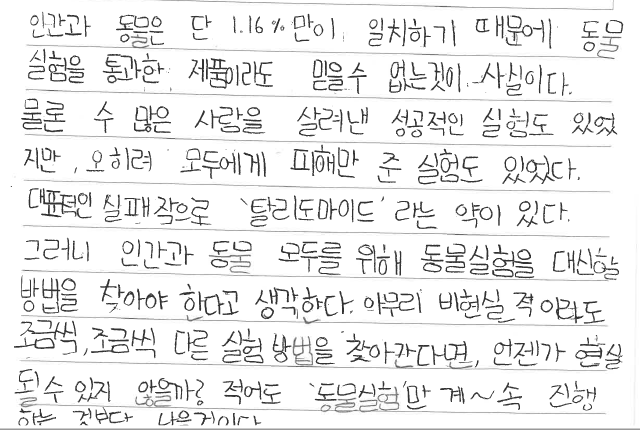 인간과 동물은 단 1.16%만이 일치하기 때문에 동물
실험을 통과한 제품이라도 믿을수 없는것이 사실이다.
물론 수 많은 사람을 살려낸 성공적인 실험도 있었
지만, 오히려 모두에게 피해만 준 실험도 있었다.
대표적인 실패작으로 '탈리도마이드' 라는 약이 있다.
그러니 인간과 동물 모두를 위해 동물실험을 대신할
방법을 찾아야 한다고 생각한다. 아무리 비현실적이라도
조금씩, 조금씩 다른 실험 방법을 찾아간다면, 언젠가 현실
될수 있지 않을까? 적어도 '동물실험'만 계~속 진행
하는 것보다 나은것이다